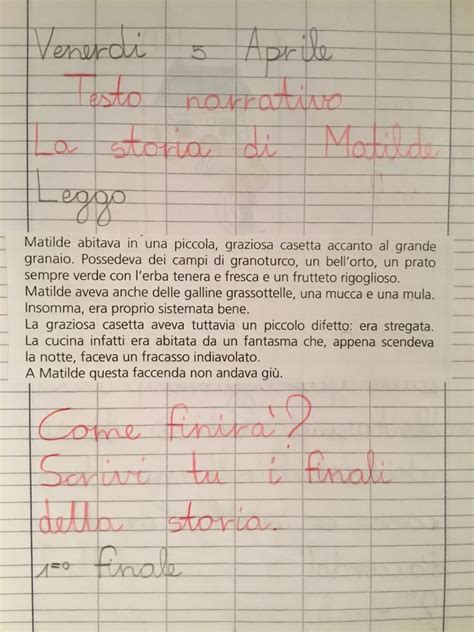 Venerdi 5 Aprile
Testo narrativo
La storia di Matilde
Leggo
Matilde abitava in una piccola, graziosa casetta accanto al grande
granaio. Possedeva dei campi di granoturco, un bell'orto, un prato
sempre verde con l'erba tenera e fresca e un frutteto rigoglioso.
Matilde aveva anche delle galline grassottelle, una mucca e una mula.
Insomma, era proprio sistemata bene.
La graziosa casetta aveva tuttavia un piccolo difetto: era stregata.
La cucina infatti era abitata da un fantasma che, appena scendeva
la notte, faceva un fracasso indiavolato.
A Matilde questa faccenda non andava giù.
Come finirà?
Scrivi tu i finali
della storia.
1=° finale